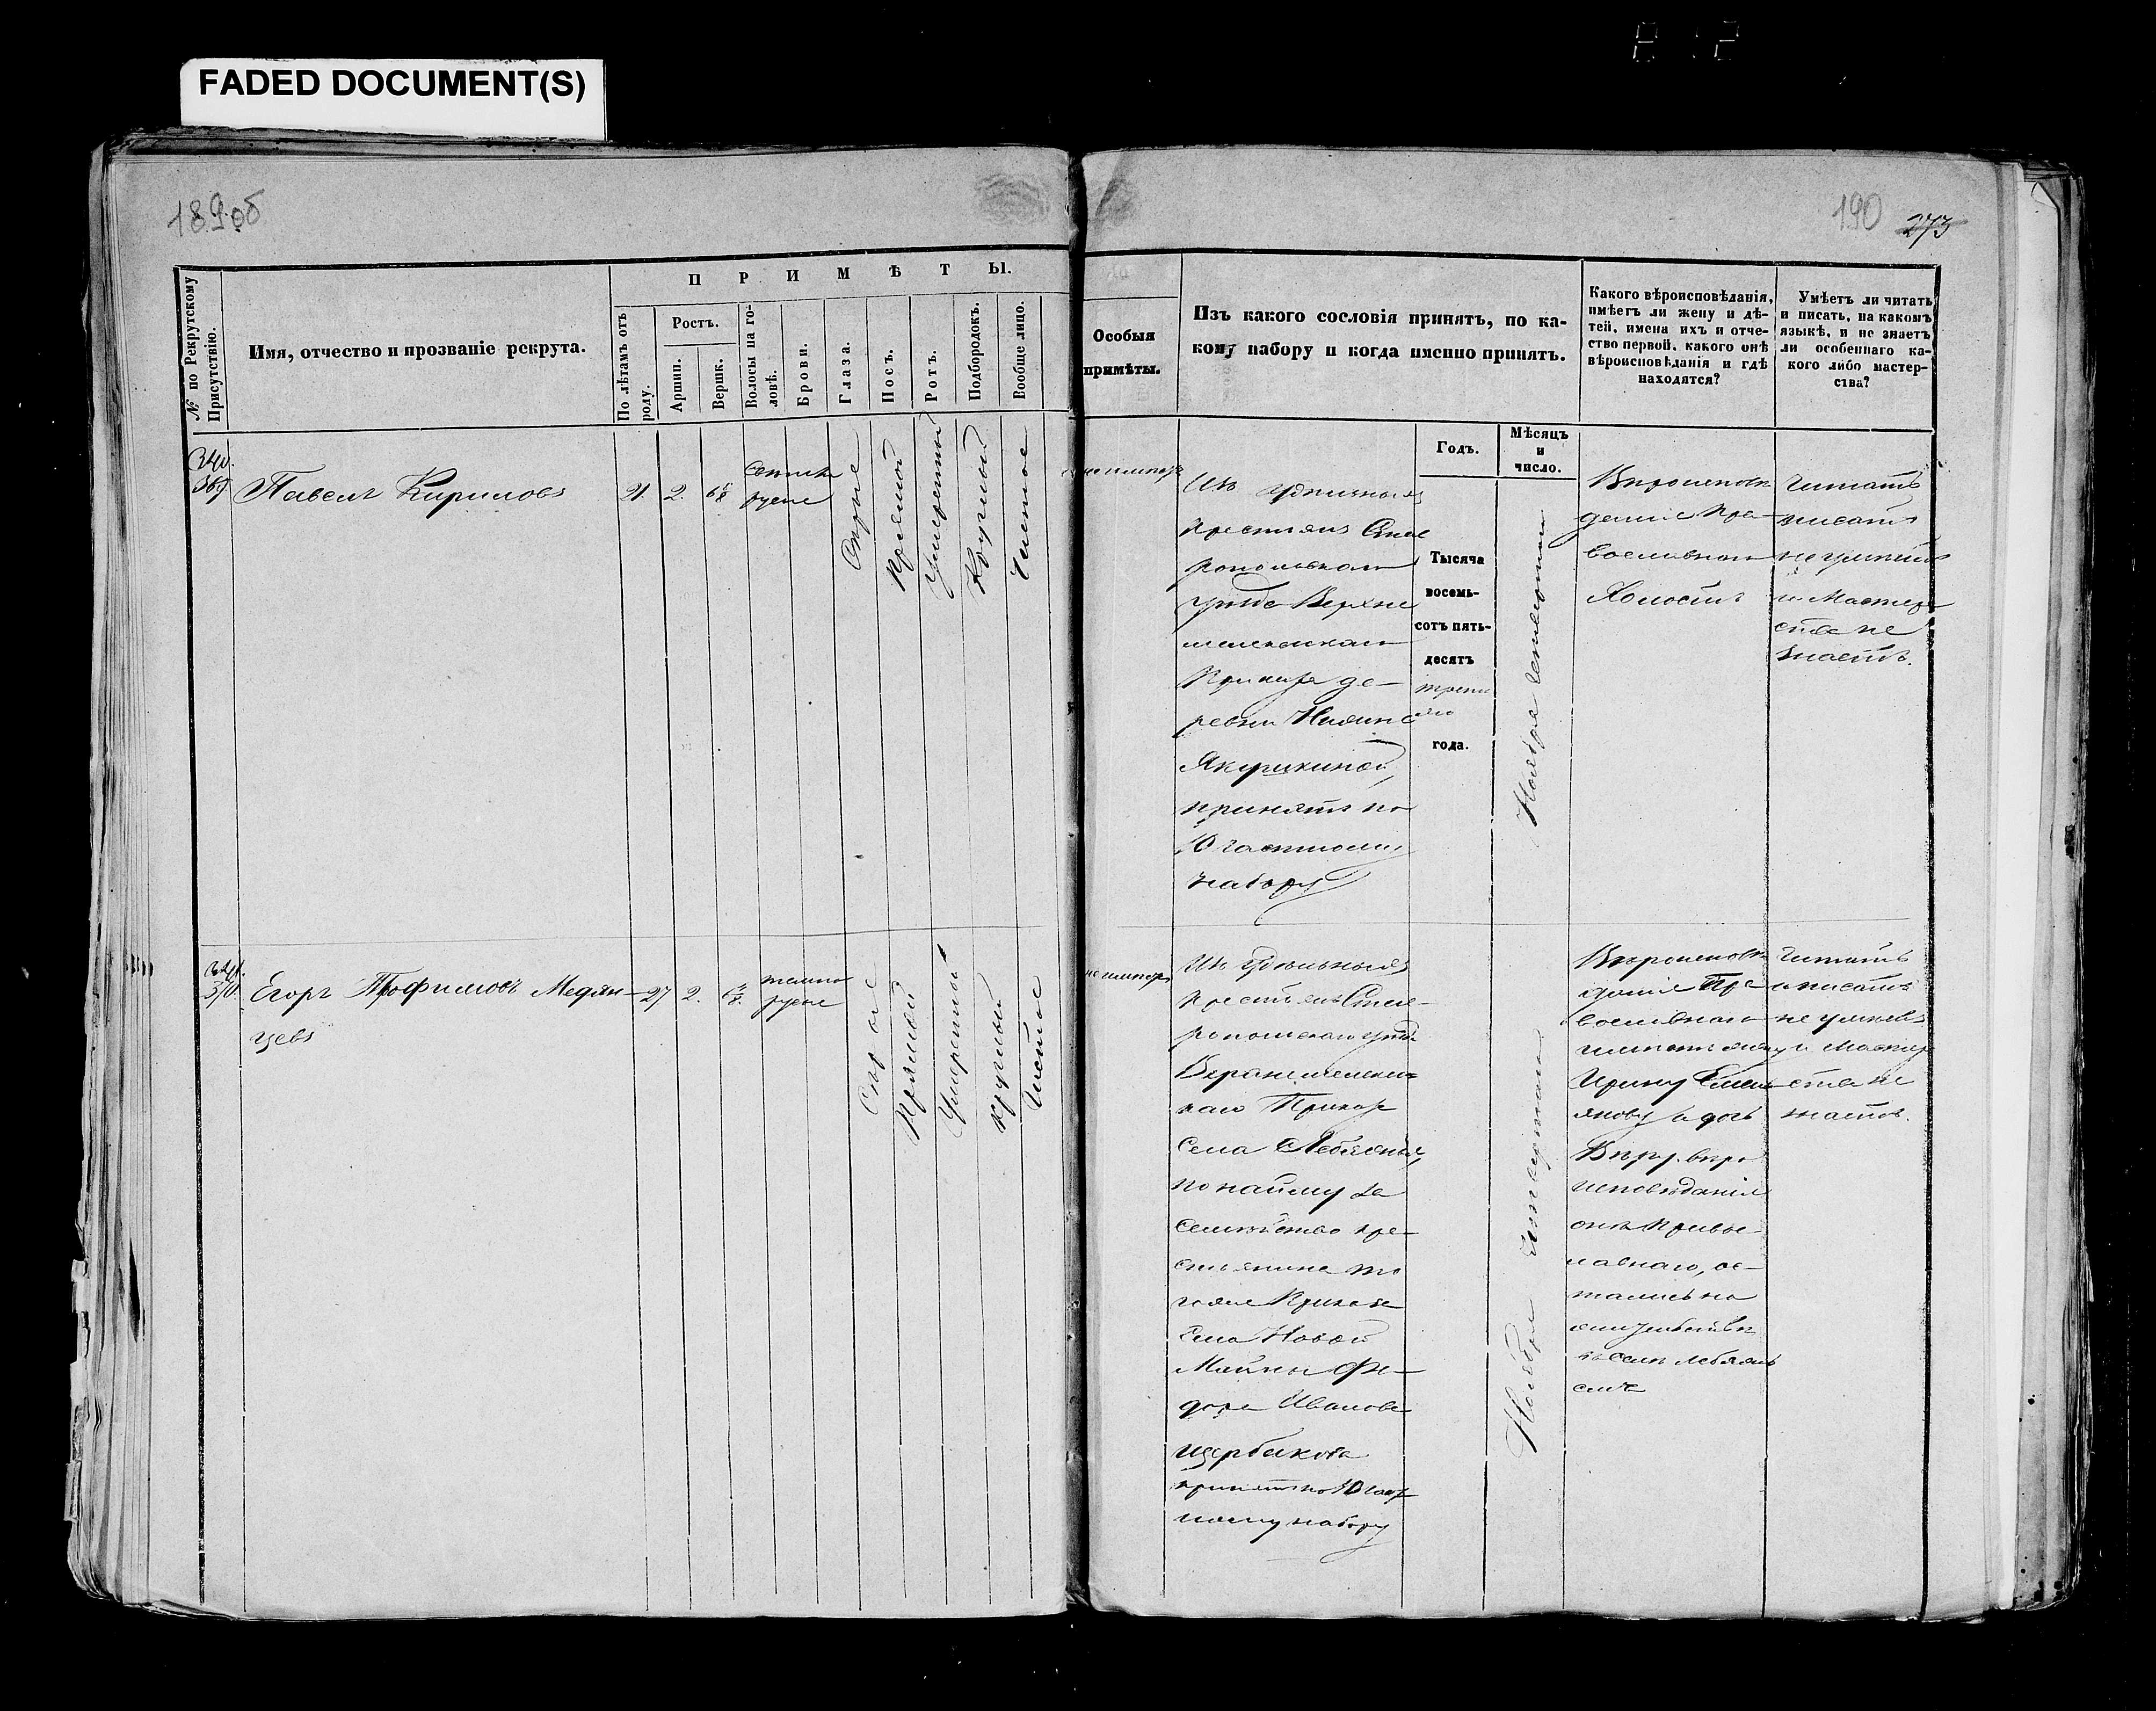 FADED DOCUMENT(S)
189об
190 273
№ по Рекрутскому Присутствію.
Имя, отчество и прозваніе рекрута.
ПРИМѢТЫ.
По лѣтамъ отъ роду.
Ростъ.
Аршин.
Вершк.
Волосы на головѣ.
Брови.
Глаза.
Носъ.
Ротъ.
Подбородокъ.
Вообще лицо.
Особыя
примѣты.
Изъ какого сословія принятъ, по ка-
кому набору и когда именно принятъ.
Какого вѣроисповѣданія,
имѣетъ ли жену и дѣ-
тей, имена ихъ и отче-
ство первой, какого онѣ
вѣроисповѣданія и гдѣ
находятся?
Умѣетъ ли читать
и писать, на какомъ
языкѣ, и не знаетъ
ли особеннаго ка-
кого либо мастер-
ства?
Годъ.
Мѣсяцъ
и
число.
369
Павелъ Кириловъ
21. 2. 6
русые
Сѣрые
Прямой
Умеренный
Круглый
Чистое
не имѣетъ
Изъ удѣльныхъ
крестьянъ Став
ропольскаго
уѣзда Верхне
мелекескаго
Приказа де-
ревни
принятъ по
10 частному
набору
Тысяча
восемь-
сотъ пять-
десятъ
третья
го
года.
Ноября четвертаго
Вѣроисповѣ
данія Пра-
вославнаго
Холостъ
Читать
писать
не умѣетъ
и Мастер
ства не
знаетъ.
370
Егоръ Трофимовъ Медян-
цевъ
27 2. 6
темно
русые
Сѣрые
Прямой
Умеренный
круглый
Чистое
не имѣетъ
Изъ удѣльныхъ
крестьянъ Став-
ропольскаго уѣзда
Верхнемелекес
каго Приказа
Села Лебяжья,
по найму за
семѣйство кре-
стьянина то
гоже Приказа
Села Новой
Майны Фе-
дора Иванова
Щербакова
принятъ по 10 част
ному набору
Ноября четвертаго
Вѣроисповѣ
данія Пра-
вославнаго
имѣетъ жену
Ирину Емель
янову и дочь
Вѣру вѣро
исповѣданія
онѣ Право-
славнаго, ос-
тались на
жительствѣ
въ селѣ Лебяжь
емъ
Читать
и писать
не умѣетъ
и Мастер
ства не
знаетъ.